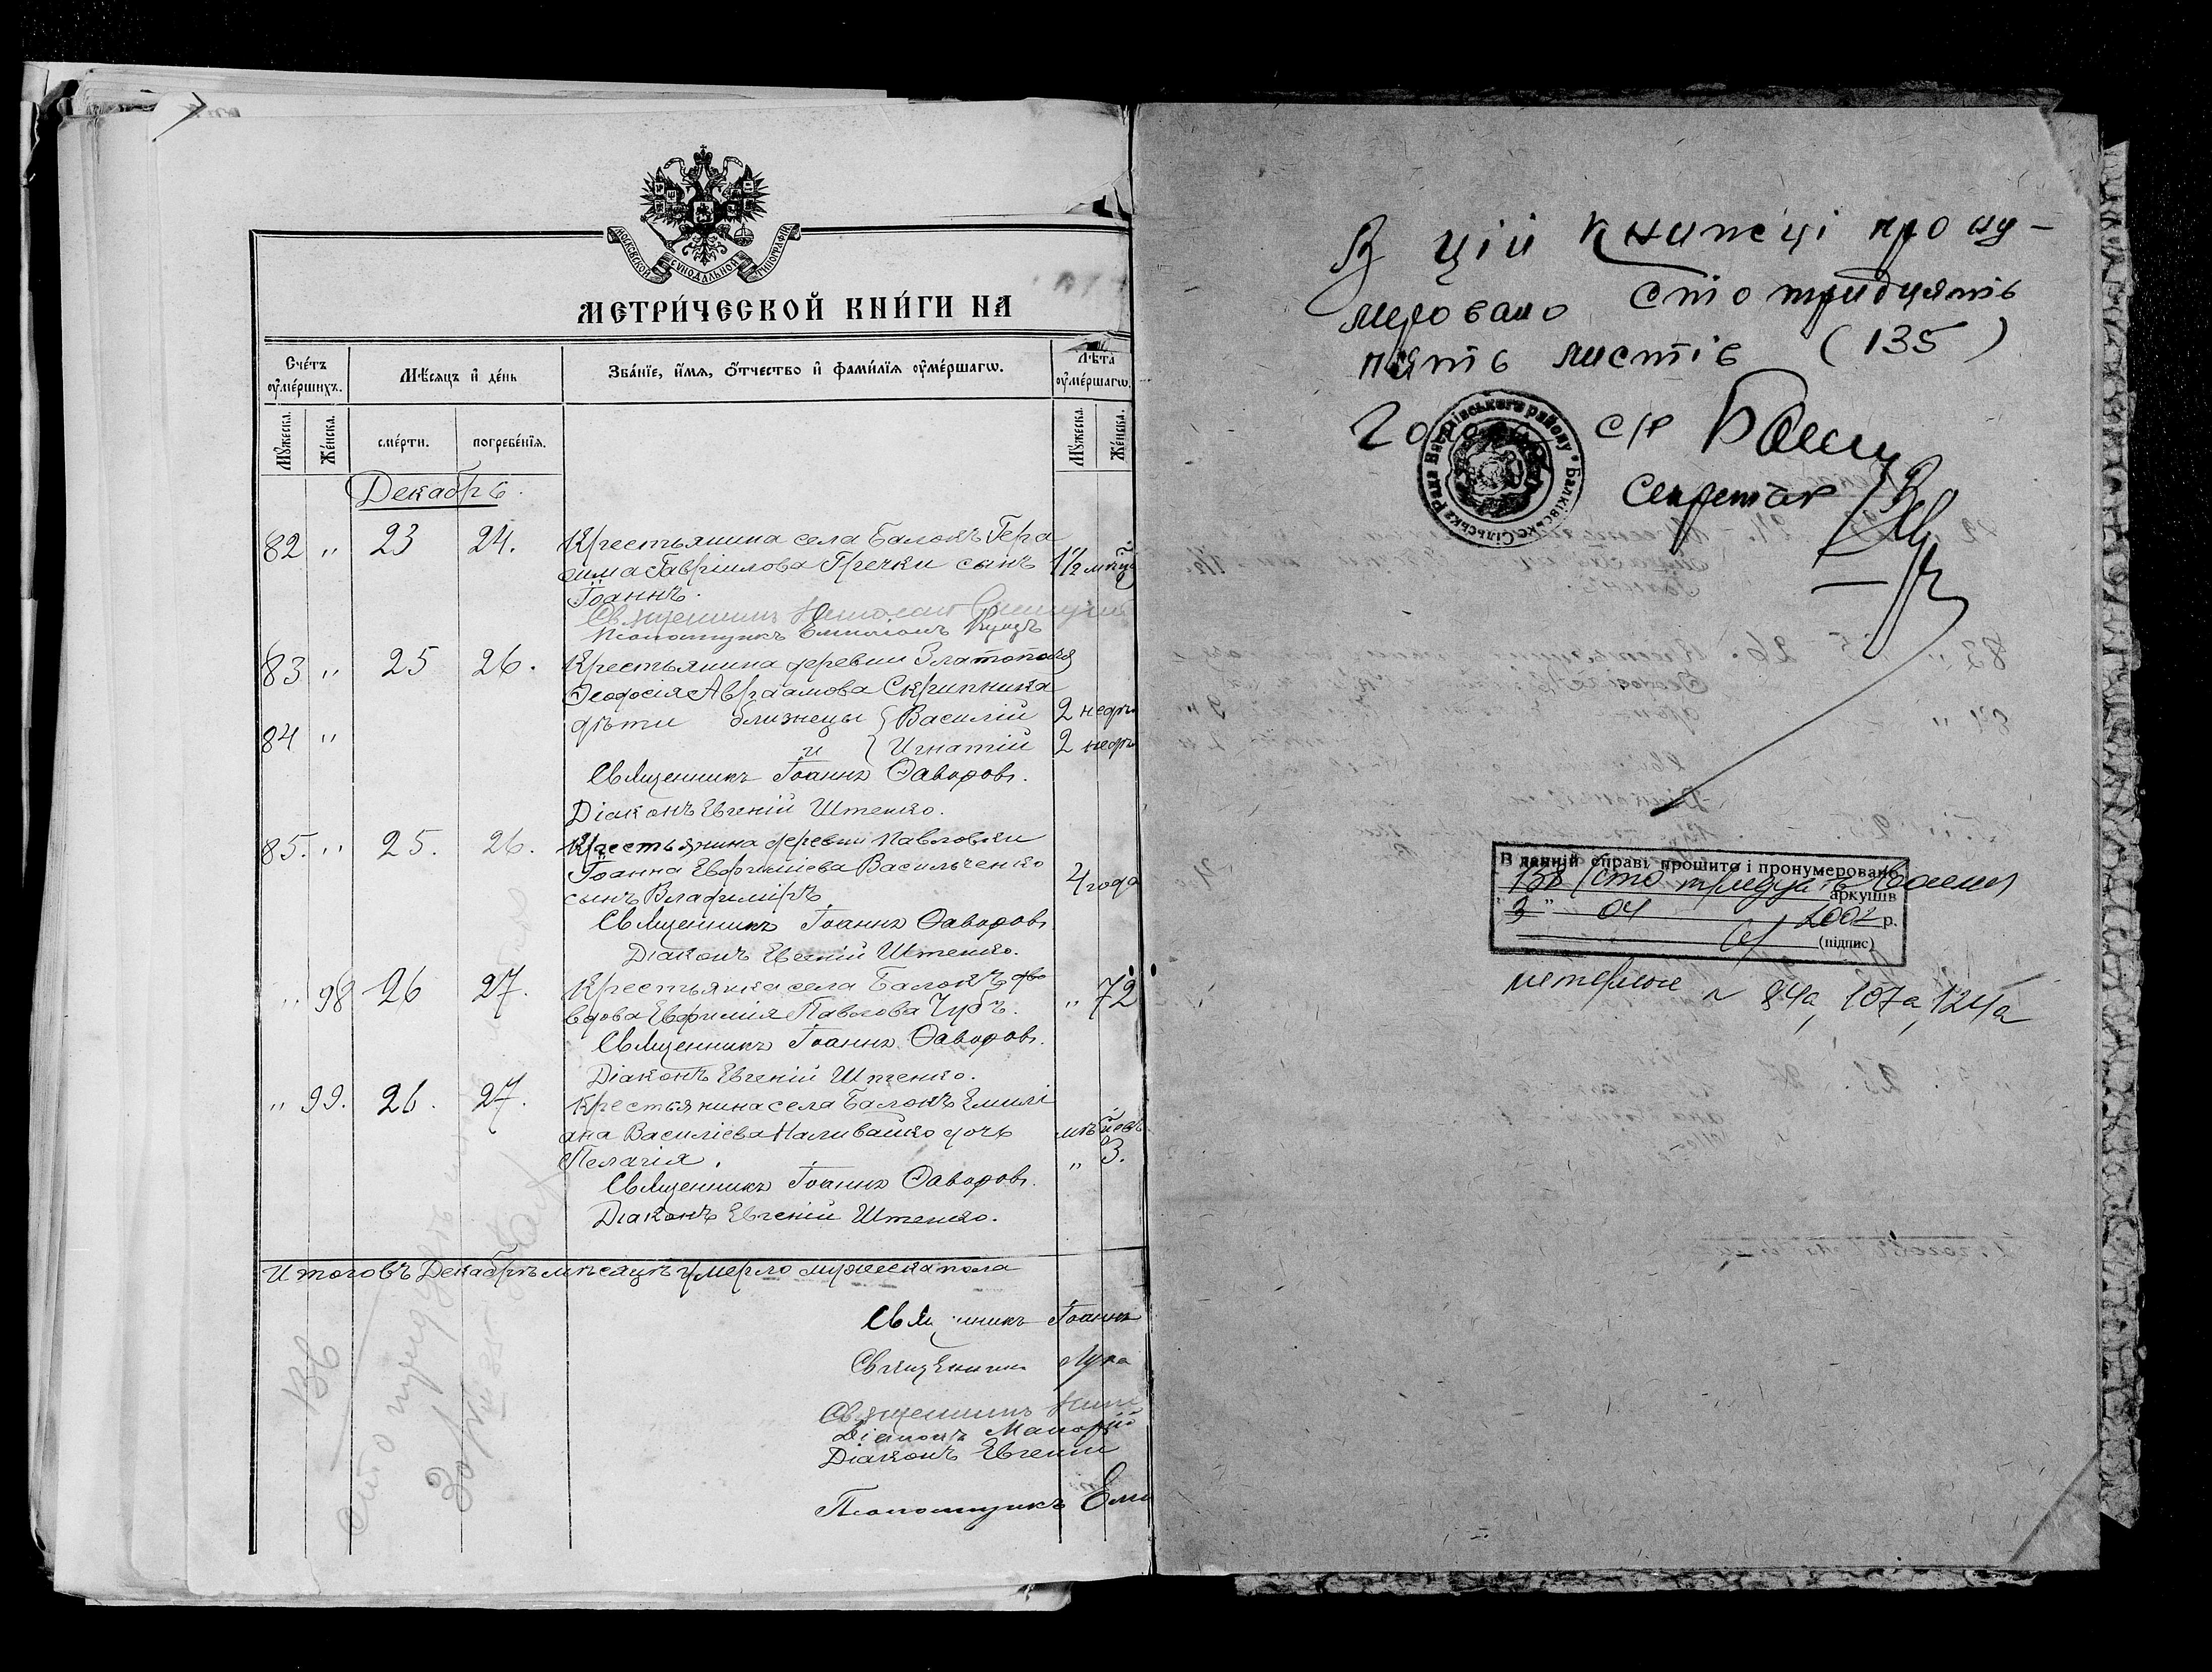 МОСКОВСКОЙ СѴНОДАЛЬНОЙ ТИПОГРАФІИ
МЕТРИ́ЧЕСКОЙ КНИ́ГИ НА
Сче́тъ оуме́ршихъ.
Мѣ́сяцъ и де́нь
Зва́нїе, и́мя, о́тчество и фами́лїя оуме́ршагѡ.
Лѣ́та оуме́ршагѡ.
Мꙋ́жеска.
Же́нска.
сме́рти.
погребе́нїя.
Мꙋ́жеска.
Же́нска.
Декабрь.
82 " 23 24. Крестьянина села Балокъ Гера
сима Гавріилова Гречки сынъ 1½ мѣц.
Іоаннъ.
Священникъ
Псаломщикъ Емиліанъ
83 " 25 26. Крестьянина деревни Златополя
Ѳеодосія Авраамова Скрипника
дѣти близнецы { Василій 2 недѣ
84 " и { Игнатій 2 недѣ
Священникъ Іоаннъ Ѳаворовъ.
Діаконъ Евгеній Штенко.
85. " 25. 26. Крестьянина деревни Павловки
Іоанна Евфиміева Васильченко 4 года
сынъ Владиміръ.
Священникъ Іоаннъ Ѳаворовъ.
Діаконъ Евгеній Штенко.
" 98 26 27. Крестьянка села Балокъ
вдова Евфимія Павлова Чубъ. " 72
Священникъ Іоаннъ Ѳаворовъ.
Діаконъ Евгеній Штенко.
" 99. 26. 27. Крестьянина села Балокъ Емилі
ана Василіева Наливайко дочь
Пелагія. " 3.
Священникъ Іоаннъ Ѳаворовъ.
Діаконъ Евгеній Штенко.
Итого въ Декабрѣ мѣсяцѣ умерло мужеска пола
Священникъ Іоаннъ
Священникъ Лука
Священникъ
Діаконъ
Діаконъ Евгеній
Псаломщикъ Еми
136
В цій книжці прону-
меровано сто тридцять
пять листів (135)
Голова с/р
Секретар
Рада Василівського району * Балківська Сільська
В данній справі прошито і пронумеровано
138 (сто тридцять
аркушів
"3" 04 2002 р.
(підпис)
литерные л 84а, 107а, 124а